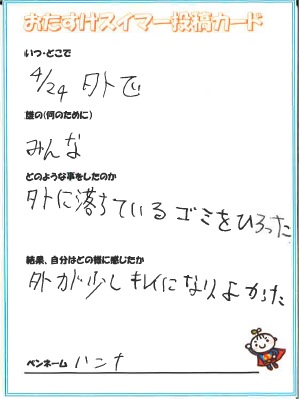 おたすけスイマー投稿カード
いつ・どこで
4/24 外で
誰の(何のために)
みんな
どのような事をしたのか
外に落ちているゴミをひろった
結果、自分はどの様に感じたか
外が少しキレイになりよかった
ペンネーム ハンナ